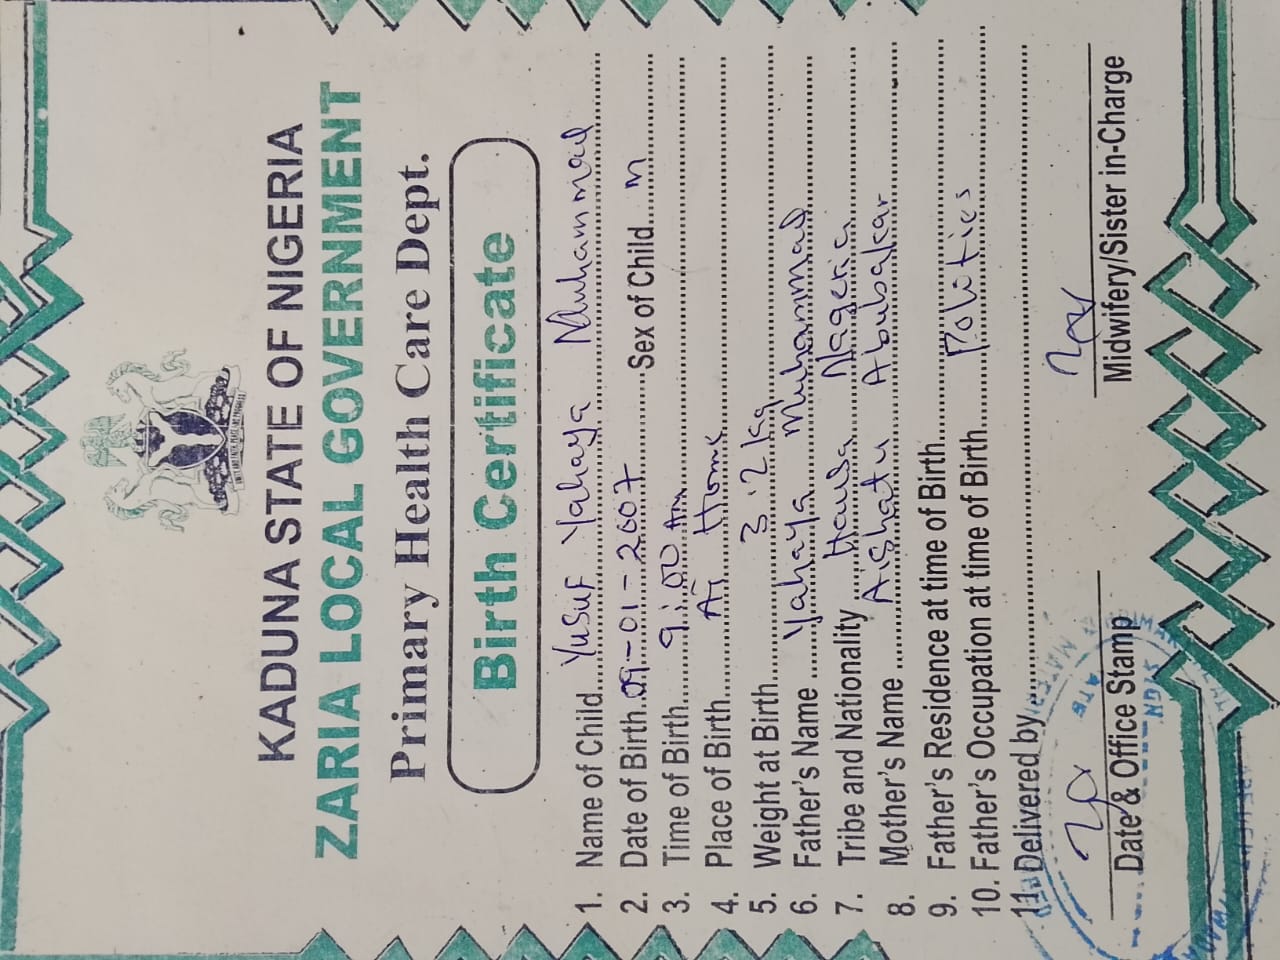 KADUNA STATE OF NIGERIA
ZARIA LOCAL GOVERNMENT
Primary Health Care Dept.
Birth Certificate
1. Name of Child......Yusuf Yahaya Muhammad......
2. Date of Birth..09-01-2007......Sex of Child....M......
3. Time of Birth......9:00 Am......
4. Place of Birth......At Home......
5. Weight at Birth......3.2kg......
6. Father's Name ......Yahaya Muhammad......
7. Tribe and Nationality ....Hausa Nageria......
8. Mother's Name ......Aishatu Abubakar......
9. Father's Residence at time of Birth......
10. Father's Occupation at time of Birth......Politics......
11. Delivered by......
Date & Office Stamp
Midwifery/Sister in-Charge